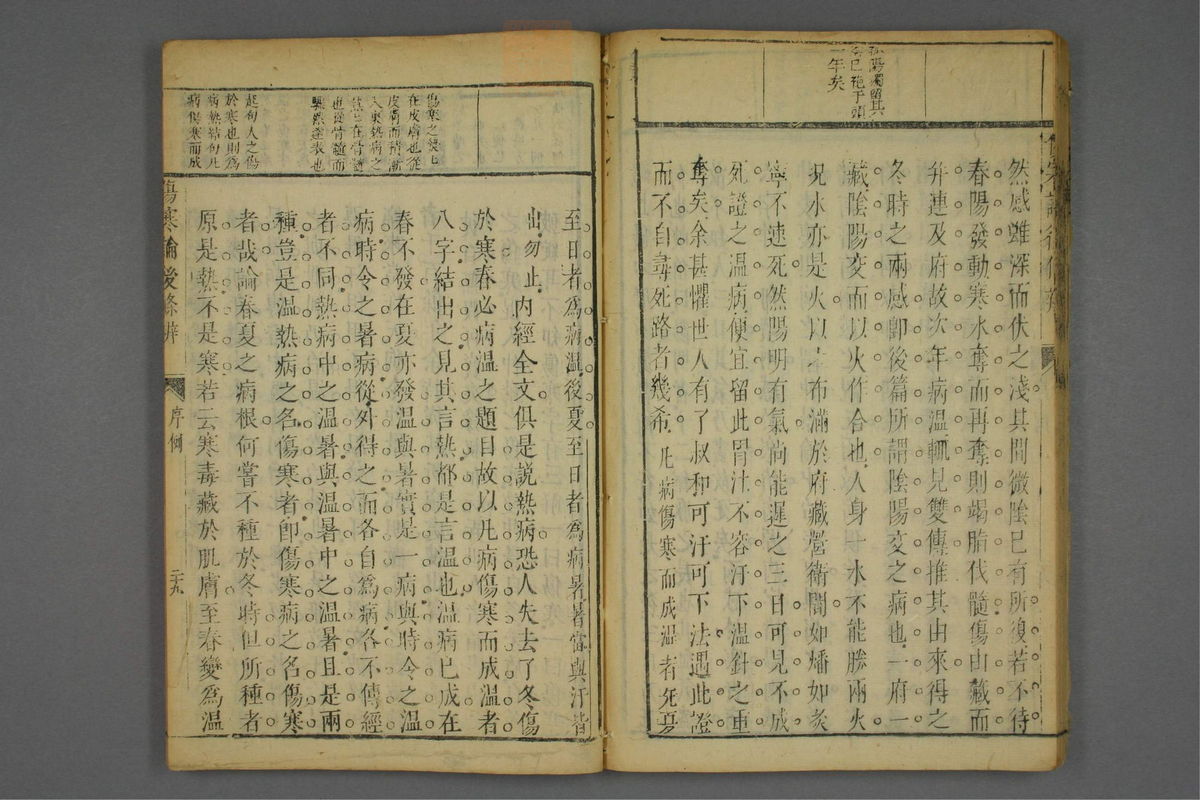 孤陽獨留其
害已種于頭
一年矣
然感雖深而伏之淺其間微陰已有所復若不待
春陽發動寒水奪而再奪則竭脂伐髓傷由藏而
并連及府故次年病溫輒見雙傳推其由來得之
冬時之兩感卽後篇所謂陰陽交之病也一府一
藏陰陽交而以火作合也人身一水不能勝兩火
況水亦是火以之布滿於府藏營衛間如燔如炙
寧不速死然陽明有氣尚能遲之三日可見不成
死證之溫病便宜留此胃汁不容汗下溫針之重
奪矣余甚懼世人有了叔和可汗可下法遇此證
而不自尋死路者幾希凡病傷寒而成溫者先夏
傷寒之侵也
在皮膚也從
皮膚而稍漸
入裏熱病之
熱已在骨髓
也從骨髓而
驟然達表也
起句人之傷
於寒也則爲
病熱結句凡
病傷寒而成
至日者爲病溫後夏至日者爲病暑暑當與汗皆
出勿止內經全文俱是說熱病恐人失去了冬傷
於寒春必病溫之題目故以凡病傷寒而成溫者
八字結出之見其言熱都是言溫也溫病已成在
春不發在夏亦發溫與暑實是一病與時令之溫
病時令之暑病從外得之而各自爲病各不傳經
者不同熱病中之溫暑與溫暑中之溫暑且是兩
種豈是溫熱病之名傷寒者卽傷寒病之名傷寒
者哉論春夏之病根何嘗不種於冬時但所種者
原是熱不是寒若云寒毒藏於肌膚至春變爲溫
傷寒論後條辨
序例
二十九